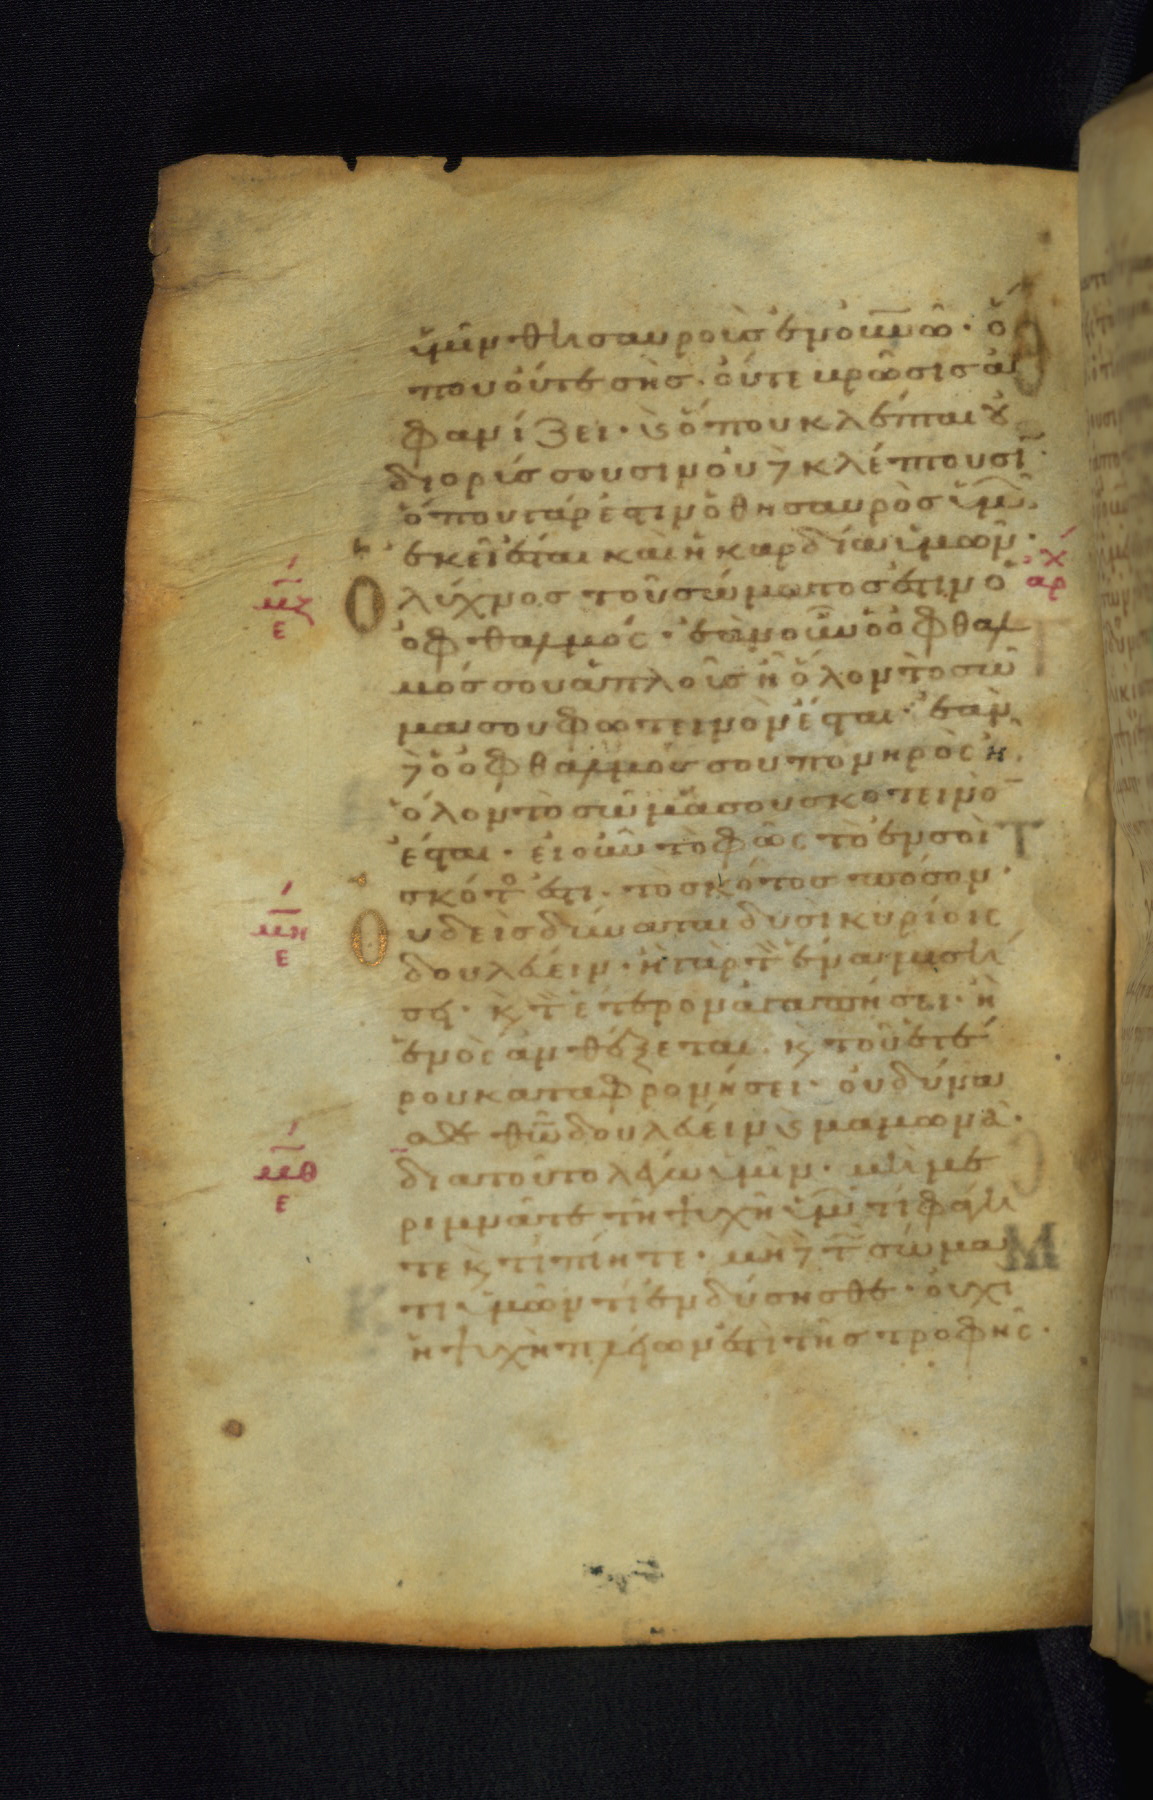 ὑμῖν θησαυροὺς ἐν οὐνῶ · ὅ
που οὔτε σὴς · οὔτε βρῶσις ἀ
φανίζει · κ ὅπου κλέπται οὐ
διορύσσουσιν οὐδὲ κλέπτουσῖ ·
ὅπου γάρ ἐστιν ὁ θησαυρὸς ὑμῶ
ἐκεῖ ἔσται καὶ ἡ καρδία ὑμῶν ·
Ὁ λύχνος τοῦ σώματος ἐστιν ὁ
ὀφθαλμός · ἐὰν οὖν ὁ ὀφθαλ
μός σου ἁπλοῦς ἦ ὅλον τὸ σῶ
μα σου φωτεινὸν ἔσται · ἐὰν
δὲ ὁ ὀφθαλμός σου πονηρὸς ἦ
ὅλον τὸ σῶμα σου σκοτεινὸ
ἔσται · εἰ οὖν τὸ φῶς τὸ ἐν σοὶ
σκότο ἐστι · τὸ σκότος πόσον ·
Οὐδεὶς δύναται δυσὶ κυρίοις
δουλεύειν · ἢ γὰρ τ ἕνα μισή
σει · κ τ ἕτερον ἀγαπήσει · ἢ
ἑνὸς ἀνθέξεται · κ τοῦ ἑτέ
ρου καταφρονήσει · οὐ δύνα
σθε θῶ δουλεύειν κ μαμωνᾶ ·
διὰ τοῦτο λέγω ὑμῖν · μὴ με
ριμνᾶτε τῆ ψυχῆ ὑμῶ τί φάγη
τε κ τί πίητε · μὴ δὲ τῶ σώμα
τι ὑμῶν τί ἐνδύσησθε · οὐχὶ
ἡ ψυχὴ πλεῖων ἐστὶ τῆς τροφῆς ·
μζ
ε
μη
ε
μθ
ε
αρχ